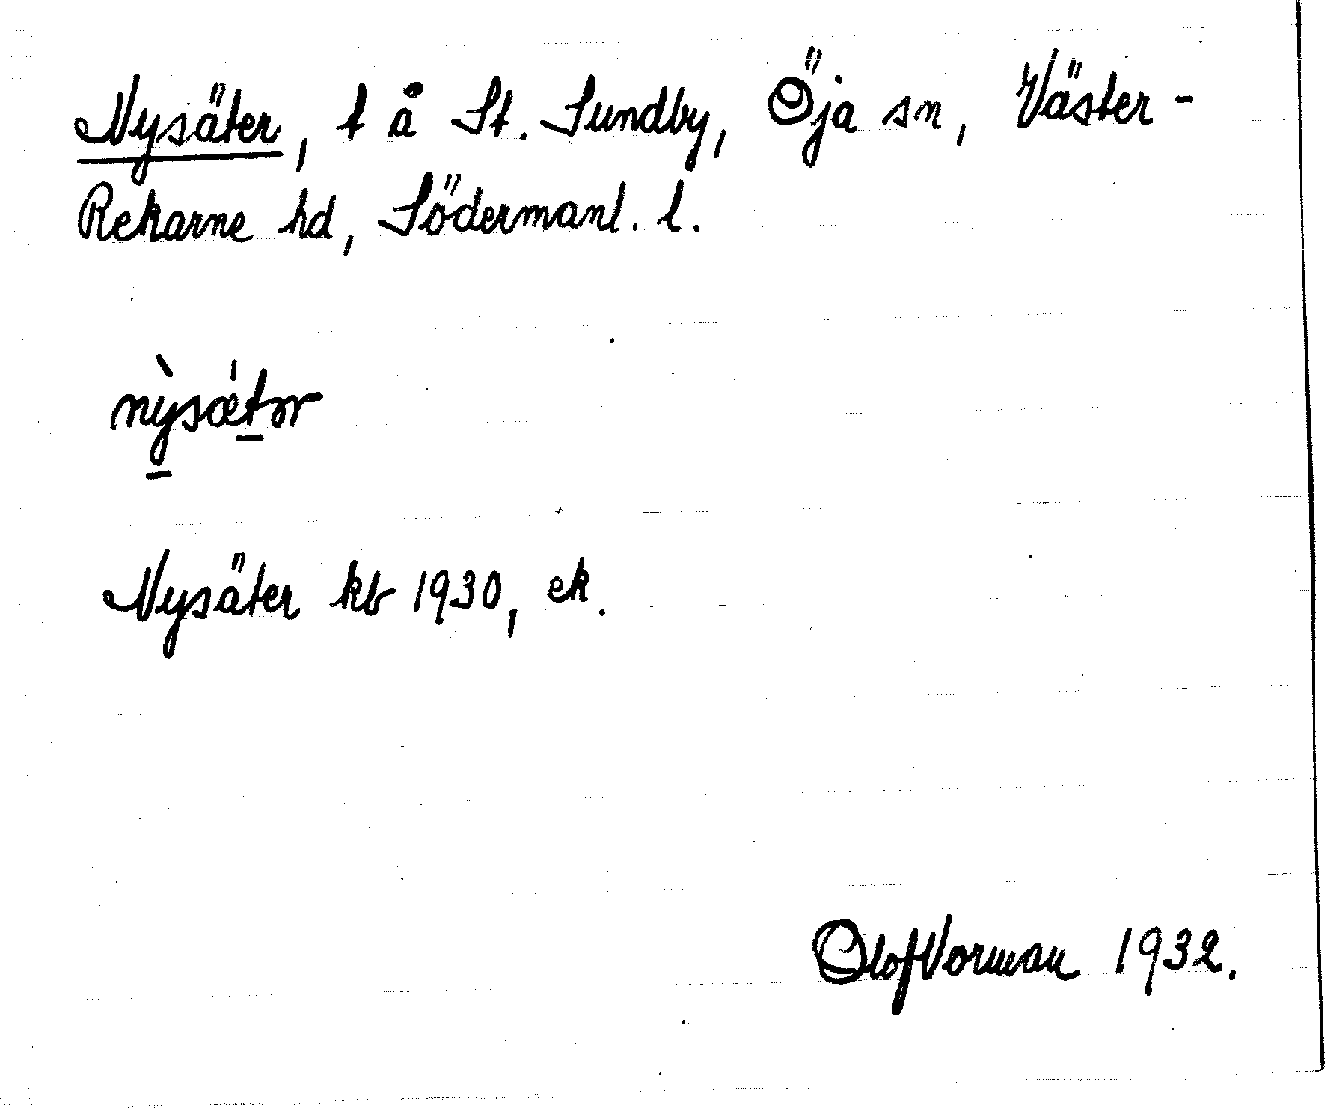 Nysäter, t å St. Sundby, Öja sn, Väster-
Rekarne hd, Södermanl. l.
Nysäter kb 1930, ek.
Olof Vorman 1932.